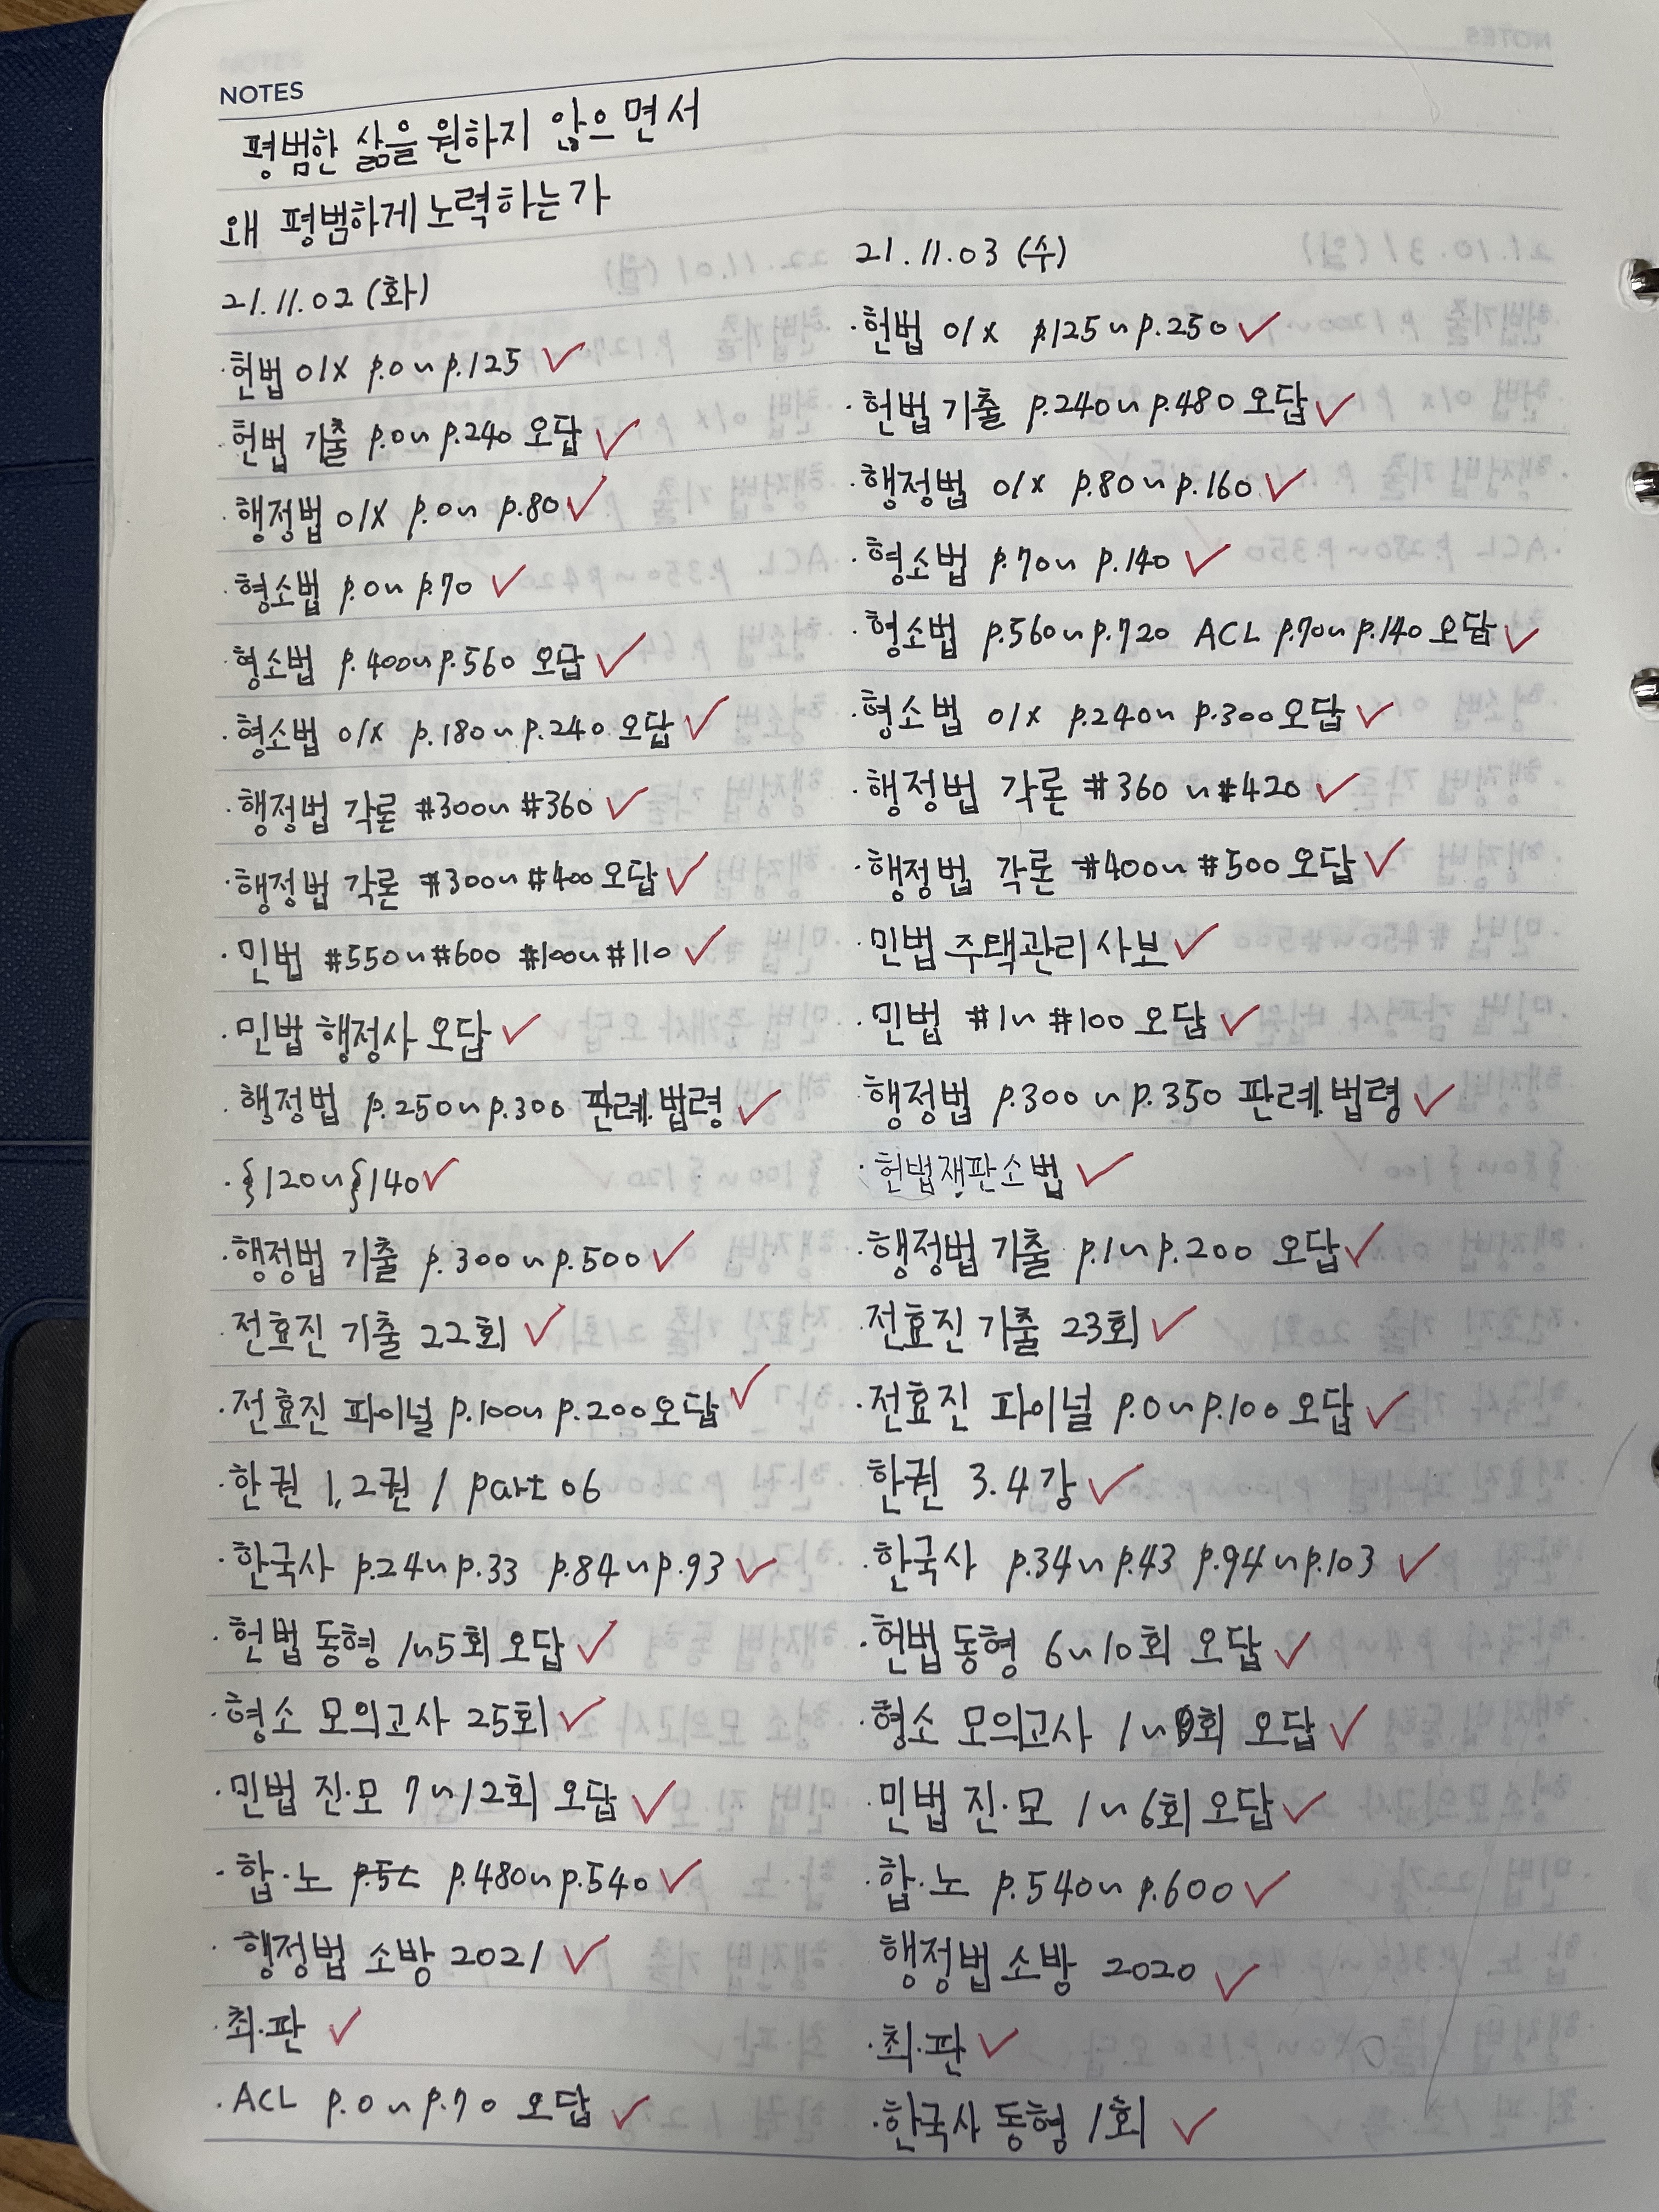 NOTES
평범한 삶을 원하지 않으면서
왜 평범하게 노력하는가
21.11.02 (화)
·헌법 O/X p.0~p.125 ✓
·헌법 기출 p.0~p.240 오답 ✓
·행정법 O/X p.0~p.80 ✓
·형소법 p.0~p.70 ✓
·형소법 p.400~p.560 오답 ✓
·형소법 O/X p.180~p.240 오답 ✓
·행정법 각론 #300~#360 ✓
·행정법 각론 #300~#400 오답 ✓
·민법 #550~#600 #100~#110 ✓
·민법 행정사 오답 ✓
·행정법 p.250~p.300 판례.법령 ✓
·{120~{140 ✓
·행정법 기출 p.300~p.500 ✓
·전효진 기출 22회 ✓
·전효진 파이널 p.100~p.200 오답 ✓
·한권 1,2권 / part 06
·한국사 p.24~p.33 p.84~p.93 ✓
·헌법 동형 1~5회 오답 ✓
·형소 모의고사 25회 ✓
·민법 진·모 7~12회 오답 ✓
·합·노 p.480~p.540 ✓
·행정법 소방 2021 ✓
·최·판 ✓
·ACL p.0~p.70 오답 ✓
21.11.03 (수)
·헌법 O/X p.125~p.250 ✓
·헌법 기출 p.240~p.480 오답 ✓
·행정법 O/X p.80~p.160 ✓
·형소법 p.70~p.140 ✓
·형소법 p.560~p.720 ACL p.70~p.140 오답 ✓
·형소법 O/X p.240~p.300 오답 ✓
·행정법 각론 #360~#420 ✓
·행정법 각론 #400~#500 오답 ✓
·민법 주택관리사보 ✓
·민법 #1~#100 오답 ✓
행정법 p.300~p.350 판례.법령 ✓
·헌법재판소법 ✓
·행정법 기출 p.1~p.200 오답 ✓
전효진 기출 23회 ✓
·전효진 파이널 p.0~p.100 오답 ✓
한권 3.4강 ✓
·한국사 p.34~p.43 p.94~p.103 ✓
·헌법 동형 6~10회 오답 ✓
·형소 모의고사 1~회 오답 ✓
·민법 진·모 1~6회 오답 ✓
·합·노 p.540~p.600 ✓
행정법 소방 2020 ✓
·최·판 ✓
·한국사 동형 1회 ✓